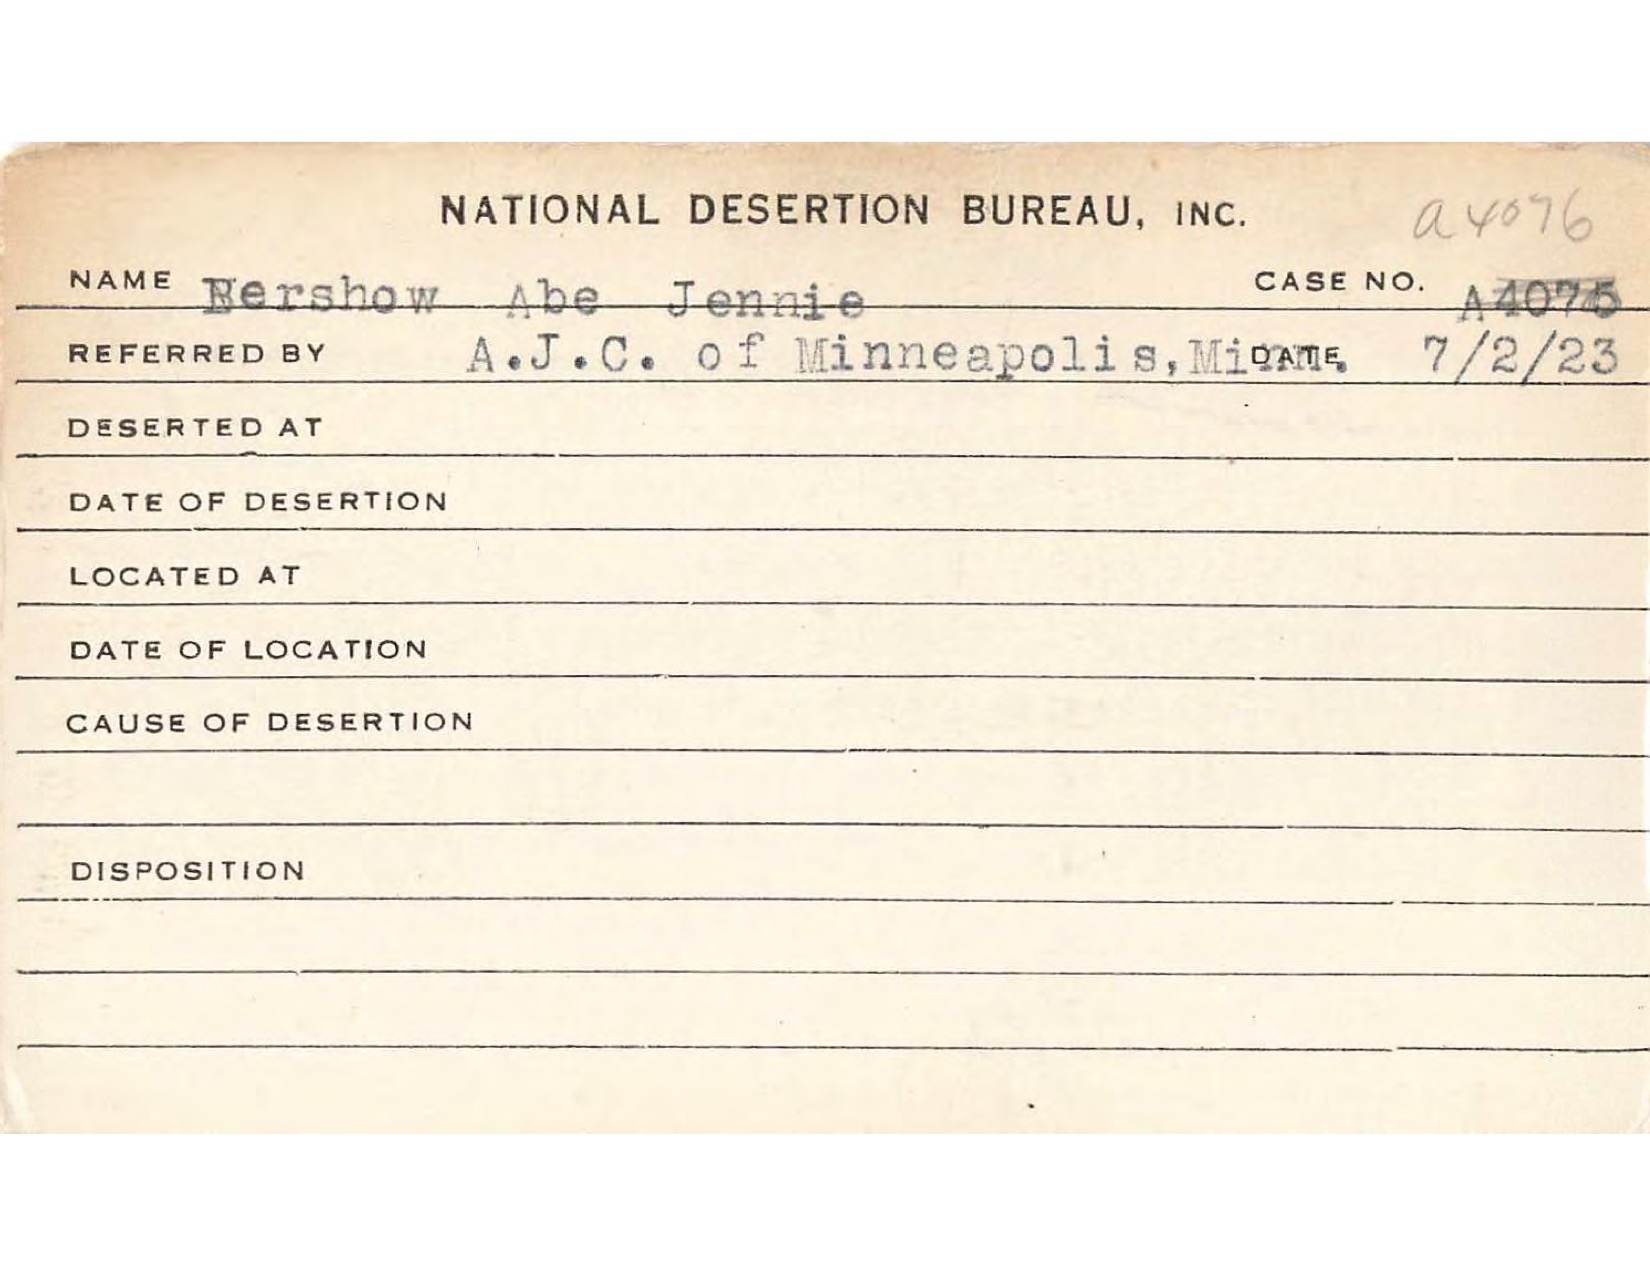 NATIONAL DESERTION BUREAU, INC. a4076
NAME Bershow Abe Jennie CASE NO. A4075
REFERRED BY A.J.C. of Minneapolis, Minn. DATE 7/2/23
DESERTED AT
DATE OF DESERTION
LOCATED AT
DATE OF LOCATION
CAUSE OF DESERTION
DISPOSITION